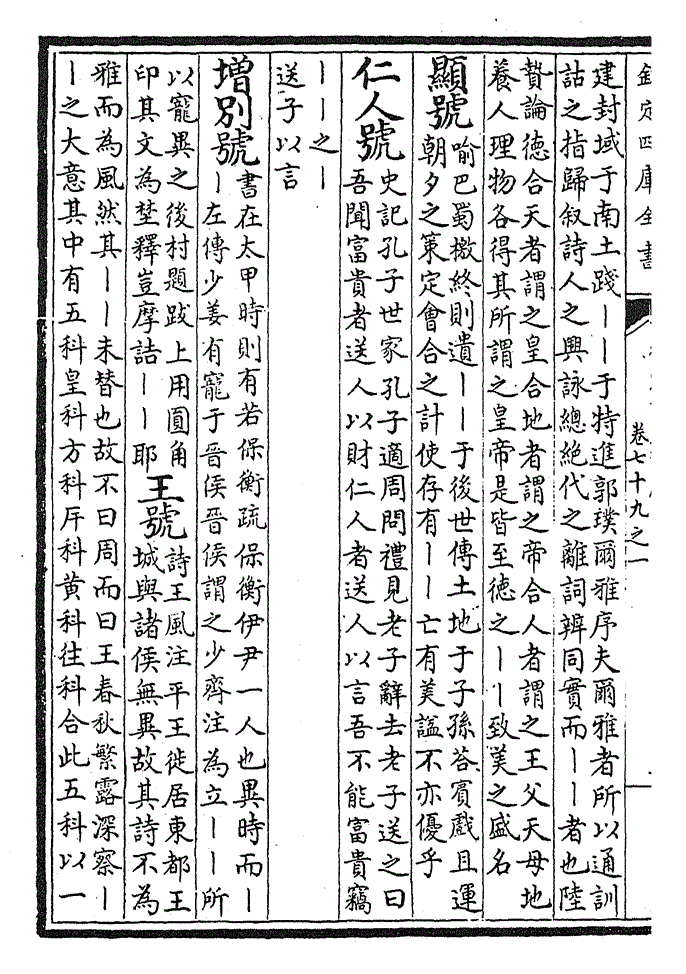 欽定四庫全書
卷七十九之一
建封域于南土踐｜｜于特進郭璞爾雅序夫爾雅者所以通訓
詁之指歸叙詩人之興詠總絶代之離詞辨同實而｜｜者也陸
贄論德合天者謂之皇合地者謂之帝合人者謂之王父天母地
養人理物各得其所謂之皇帝是皆至德之｜｜致美之盛名
顯號
喻巴蜀檄終則遺｜｜于後世傳土地于子孫荅賓戲且運
朝夕之策定會合之計使存有｜｜亡有美諡不亦優乎
仁人號
史記孔子世家孔子適周問禮見老子辭去老子送之曰
吾聞富貴者送人以財仁人者送人以言吾不能富貴竊
｜｜之｜
送子以言
增別號
書在太甲時則有若保衡疏保衡伊尹一人也異時而｜
｜左傳少姜有寵于晉侯晉侯謂之少齊注為立｜｜所
以寵異之後村題跋上用圓角
印其文為埜釋豈摩詰｜｜耶
王號
詩王風注平王徙居東都王
城與諸侯無異故其詩不為
雅而為風然其｜｜未替也故不曰周而曰王春秋繁露深察｜
｜之大意其中有五科皇科方科匡科黄科往科合此五科以一